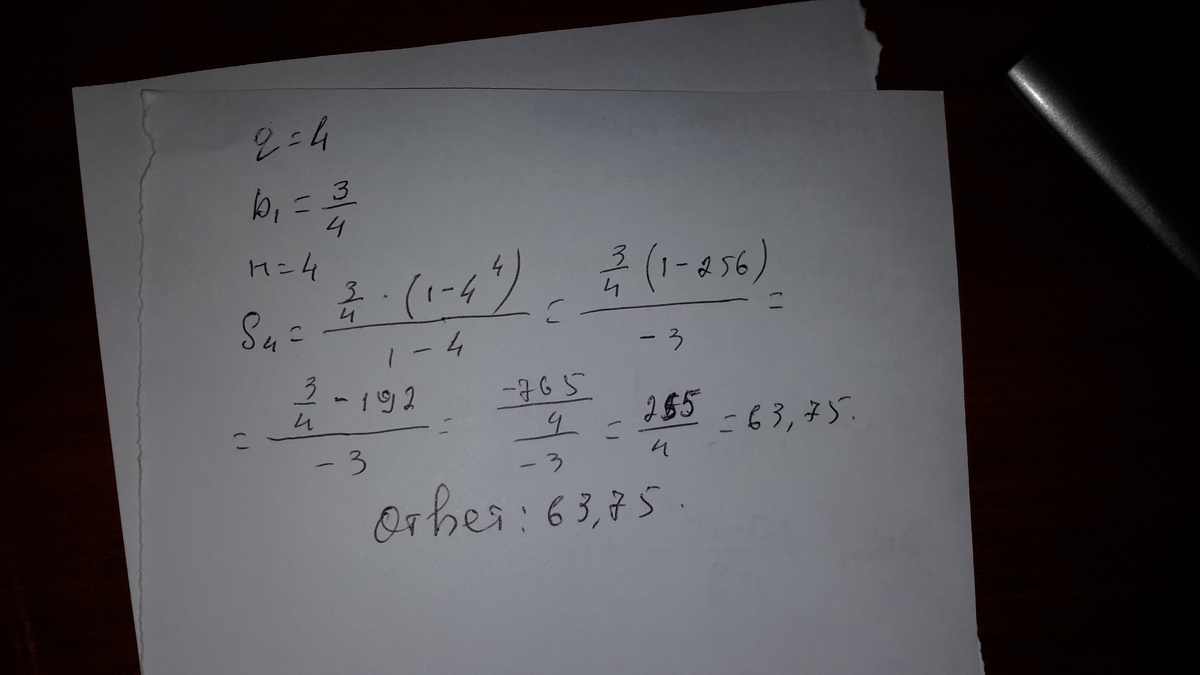 q = 4
b₁ = 3/4
n = 4
S₄ = (3/4 · (1 - 4⁴))/(1 - 4) = (3/4 (1 - 256))/(-3) =
= (3/4 - 192)/(-3) = (-765/4)/(-3) = 255/4 = 63,75.
Ответ: 63,75.